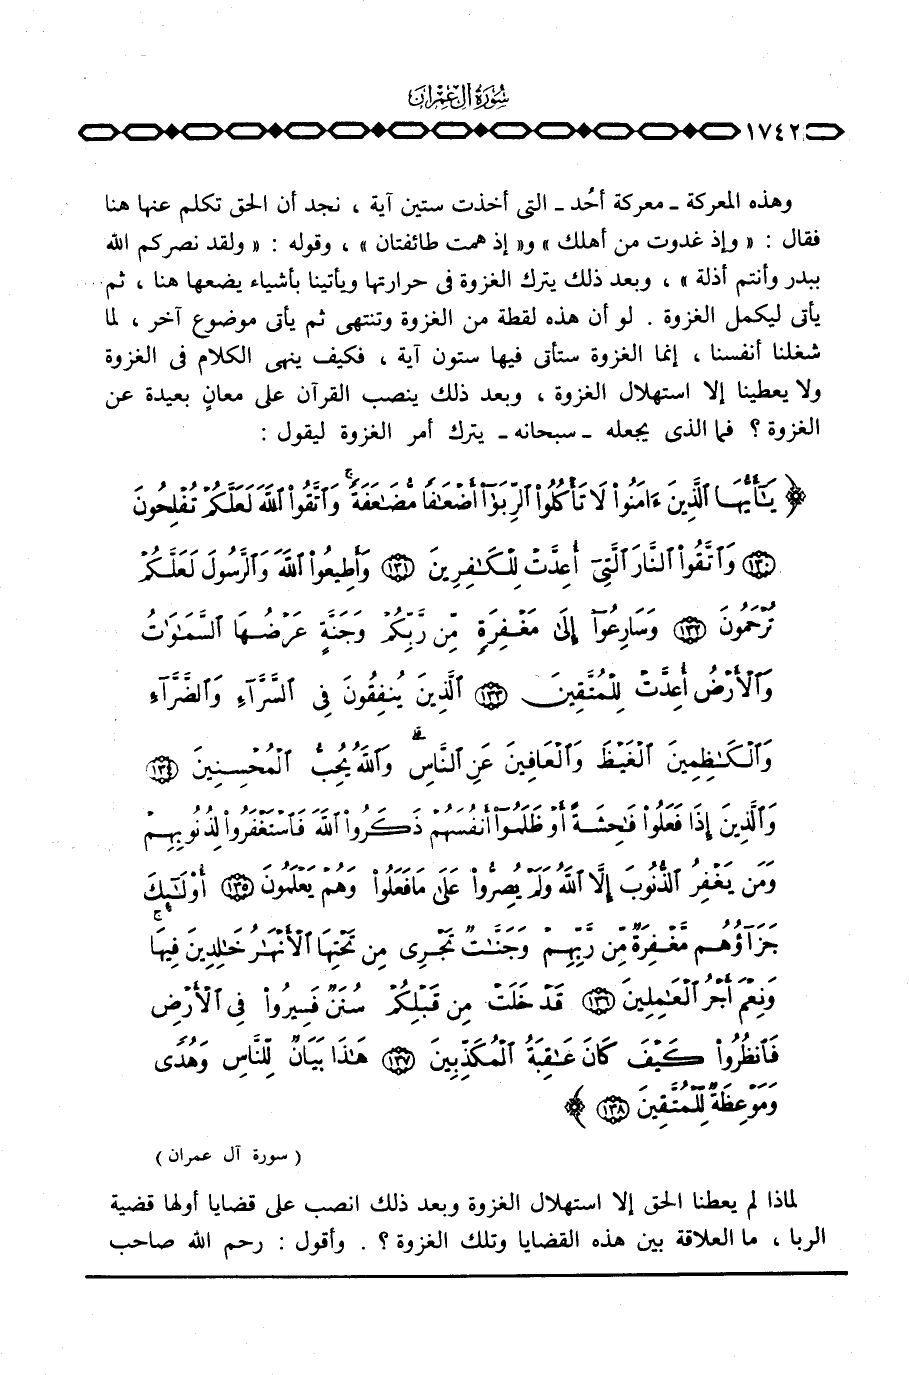 سُورَةُ آلِ عِمْرَان
١٧٤٢
وهذه المعركة ـ معركة أُحُد ـ التى أخذت ستين آية ، نجد أن الحق تكلم عنها هنا
فقال : « وإذ غدوت من أهلك » و« إذ همت طائفتان » ، وقوله : « ولقد نصركم الله
ببدر وأنتم أذلة » ، وبعد ذلك يترك الغزوة فى حرارتها ويأتينا بأشياء يضعها هنا ، ثم
يأتى ليكمل الغزوة . لو أن هذه لقطة من الغزوة وتنتهى ثم يأتى موضوع آخر ، لما
شغلنا أنفسنا ، إنما الغزوة ستأتى فيها ستون آية ، فكيف ينهى الكلام فى الغزوة
ولا يعطينا إلا استهلال الغزوة ، وبعد ذلك ينصب القرآن على معانٍ بعيدة عن
الغزوة ؟ فما الذى يجعله ـ سبحانه ـ يترك أمر الغزوة ليقول :
﴿ يَـٰٓأَيُّهَا ٱلَّذِينَ ءَامَنُوا۟ لَا تَأْكُلُوا۟ ٱلرِّبَوٰٓا۟ أَضْعَـٰفًا مُّضَـٰعَفَةً ۖ وَٱتَّقُوا۟ ٱللَّهَ لَعَلَّكُمْ تُفْلِحُونَ
﴿١٣٠﴾ وَٱتَّقُوا۟ ٱلنَّارَ ٱلَّتِىٓ أُعِدَّتْ لِلْكَـٰفِرِينَ ﴿١٣١﴾ وَأَطِيعُوا۟ ٱللَّهَ وَٱلرَّسُولَ لَعَلَّكُمْ
تُرْحَمُونَ ﴿١٣٢﴾ وَسَارِعُوٓا۟ إِلَىٰ مَغْفِرَةٍ مِّن رَّبِّكُمْ وَجَنَّةٍ عَرْضُهَا ٱلسَّمَـٰوَٰتُ
وَٱلْأَرْضُ أُعِدَّتْ لِلْمُتَّقِينَ ﴿١٣٣﴾ ٱلَّذِينَ يُنفِقُونَ فِى ٱلسَّرَّآءِ وَٱلضَّرَّآءِ
وَٱلْكَـٰظِمِينَ ٱلْغَيْظَ وَٱلْعَافِينَ عَنِ ٱلنَّاسِ ۗ وَٱللَّهُ يُحِبُّ ٱلْمُحْسِنِينَ ﴿١٣٤﴾
وَٱلَّذِينَ إِذَا فَعَلُوا۟ فَـٰحِشَةً أَوْ ظَلَمُوٓا۟ أَنفُسَهُمْ ذَكَرُوا۟ ٱللَّهَ فَٱسْتَغْفَرُوا۟ لِذُنُوبِهِمْ
وَمَن يَغْفِرُ ٱلذُّنُوبَ إِلَّا ٱللَّهُ وَلَمْ يُصِرُّوا۟ عَلَىٰ مَا فَعَلُوا۟ وَهُمْ يَعْلَمُونَ ﴿١٣٥﴾ أُو۟لَـٰٓئِكَ
جَزَآؤُهُم مَّغْفِرَةٌ مِّن رَّبِّهِمْ وَجَنَّـٰتٌ تَجْرِى مِن تَحْتِهَا ٱلْأَنْهَـٰرُ خَـٰلِدِينَ فِيهَا ۚ
وَنِعْمَ أَجْرُ ٱلْعَـٰمِلِينَ ﴿١٣٦﴾ قَدْ خَلَتْ مِن قَبْلِكُمْ سُنَنٌ فَسِيرُوا۟ فِى ٱلْأَرْضِ
فَٱنظُرُوا۟ كَيْفَ كَانَ عَـٰقِبَةُ ٱلْمُكَذِّبِينَ ﴿١٣٧﴾ هَـٰذَا بَيَانٌ لِّلنَّاسِ وَهُدًى
وَمَوْعِظَةٌ لِّلْمُتَّقِينَ ﴿١٣٨﴾ ﴾
( سورة آل عمران )
لماذا لم يعطنا الحق إلا استهلال الغزوة وبعد ذلك انصب على قضايا أولها قضية
الربا ، ما العلاقة بين هذه القضايا وتلك الغزوة ؟ . وأقول : رحم الله صاحب